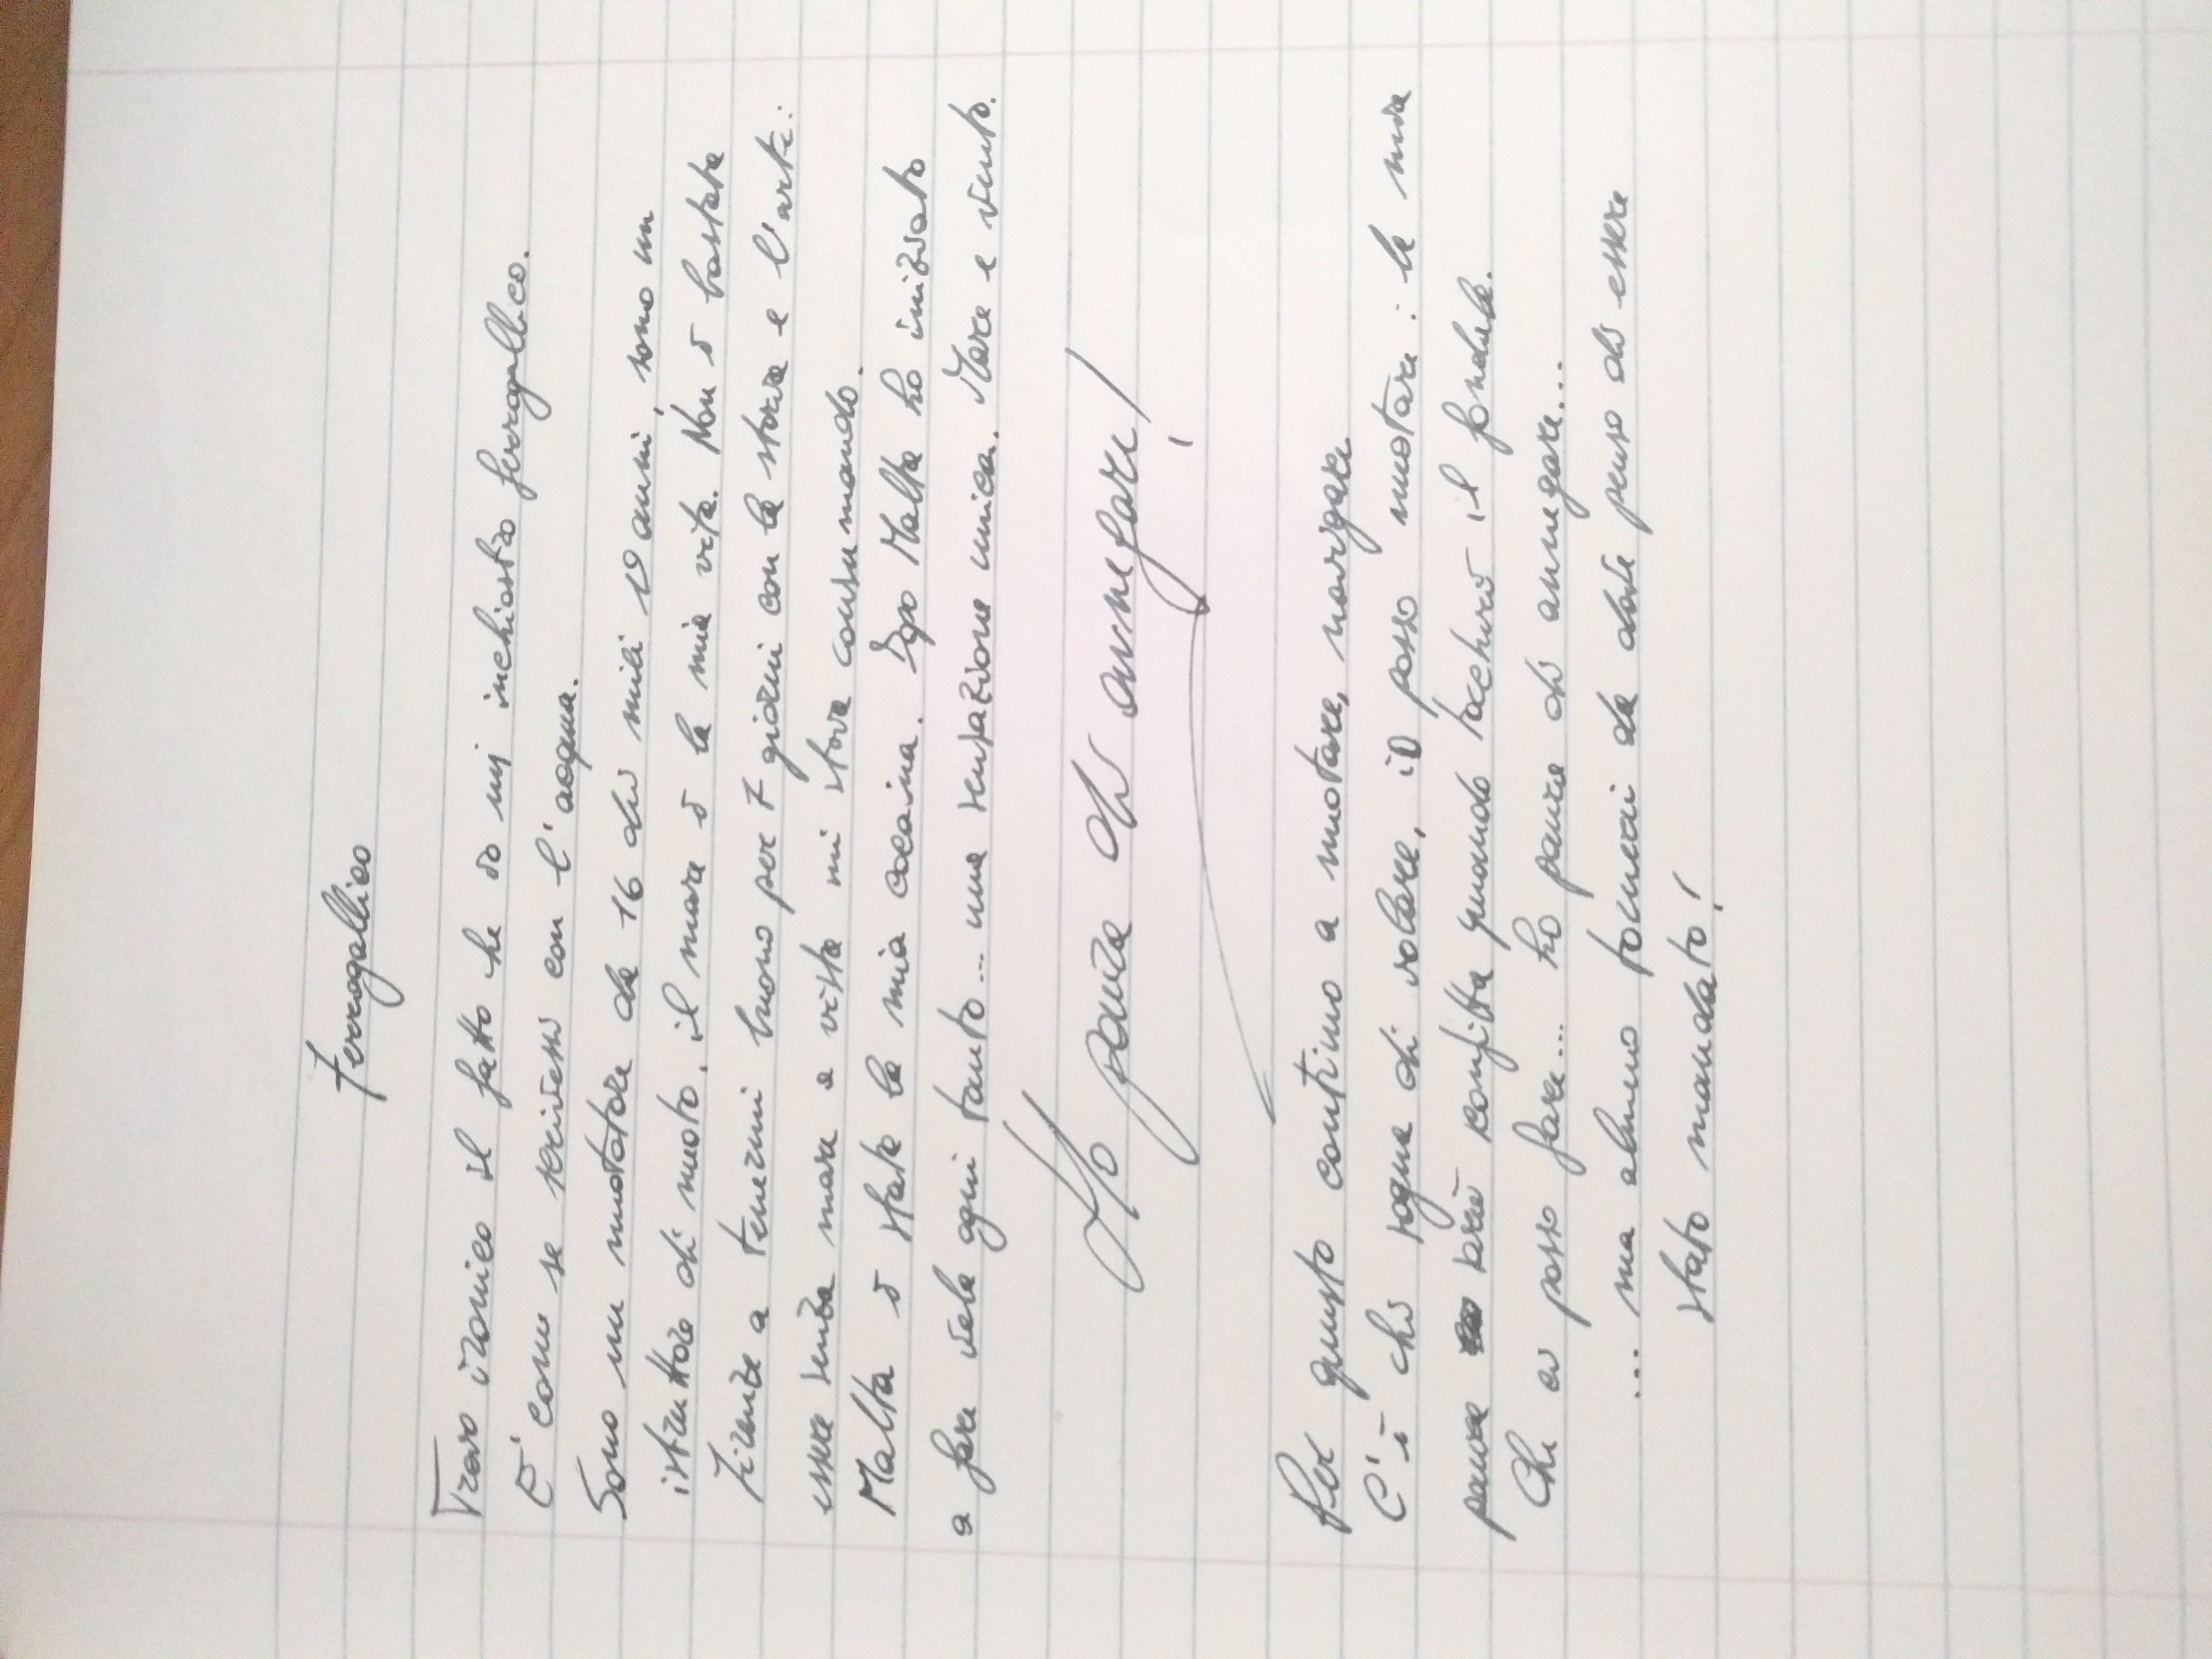 Ferrogallico
Trovo ironico il fatto che io usi inchiostro ferrogallico.
E' come se scrivessi con l'acqua.
Sono un nuotatore da 16 dei miei 19 anni, sono un
istruttore di nuoto, il mare è la mia vita. Non è bastata
Firenze a tenermi buono per 7 giorni con la storia e l'arte:
essere senza mare a vista mi stava consumando.
Malta è stata la mia cocaina. Dopo Malta ho iniziato
a fare vela ogni tanto... una sensazione unica. Mare e vento.
Ho paura di annegare!
Per questo continuo a nuotare, navigare
C'è chi sogna di volare, io posso nuotare: la mia
paura sarà sconfitta quando toccherò il fondale.
Che ci posso fare... ho paura di annegare...
... ma almeno tornerei da dove penso di essere
stato mandato!